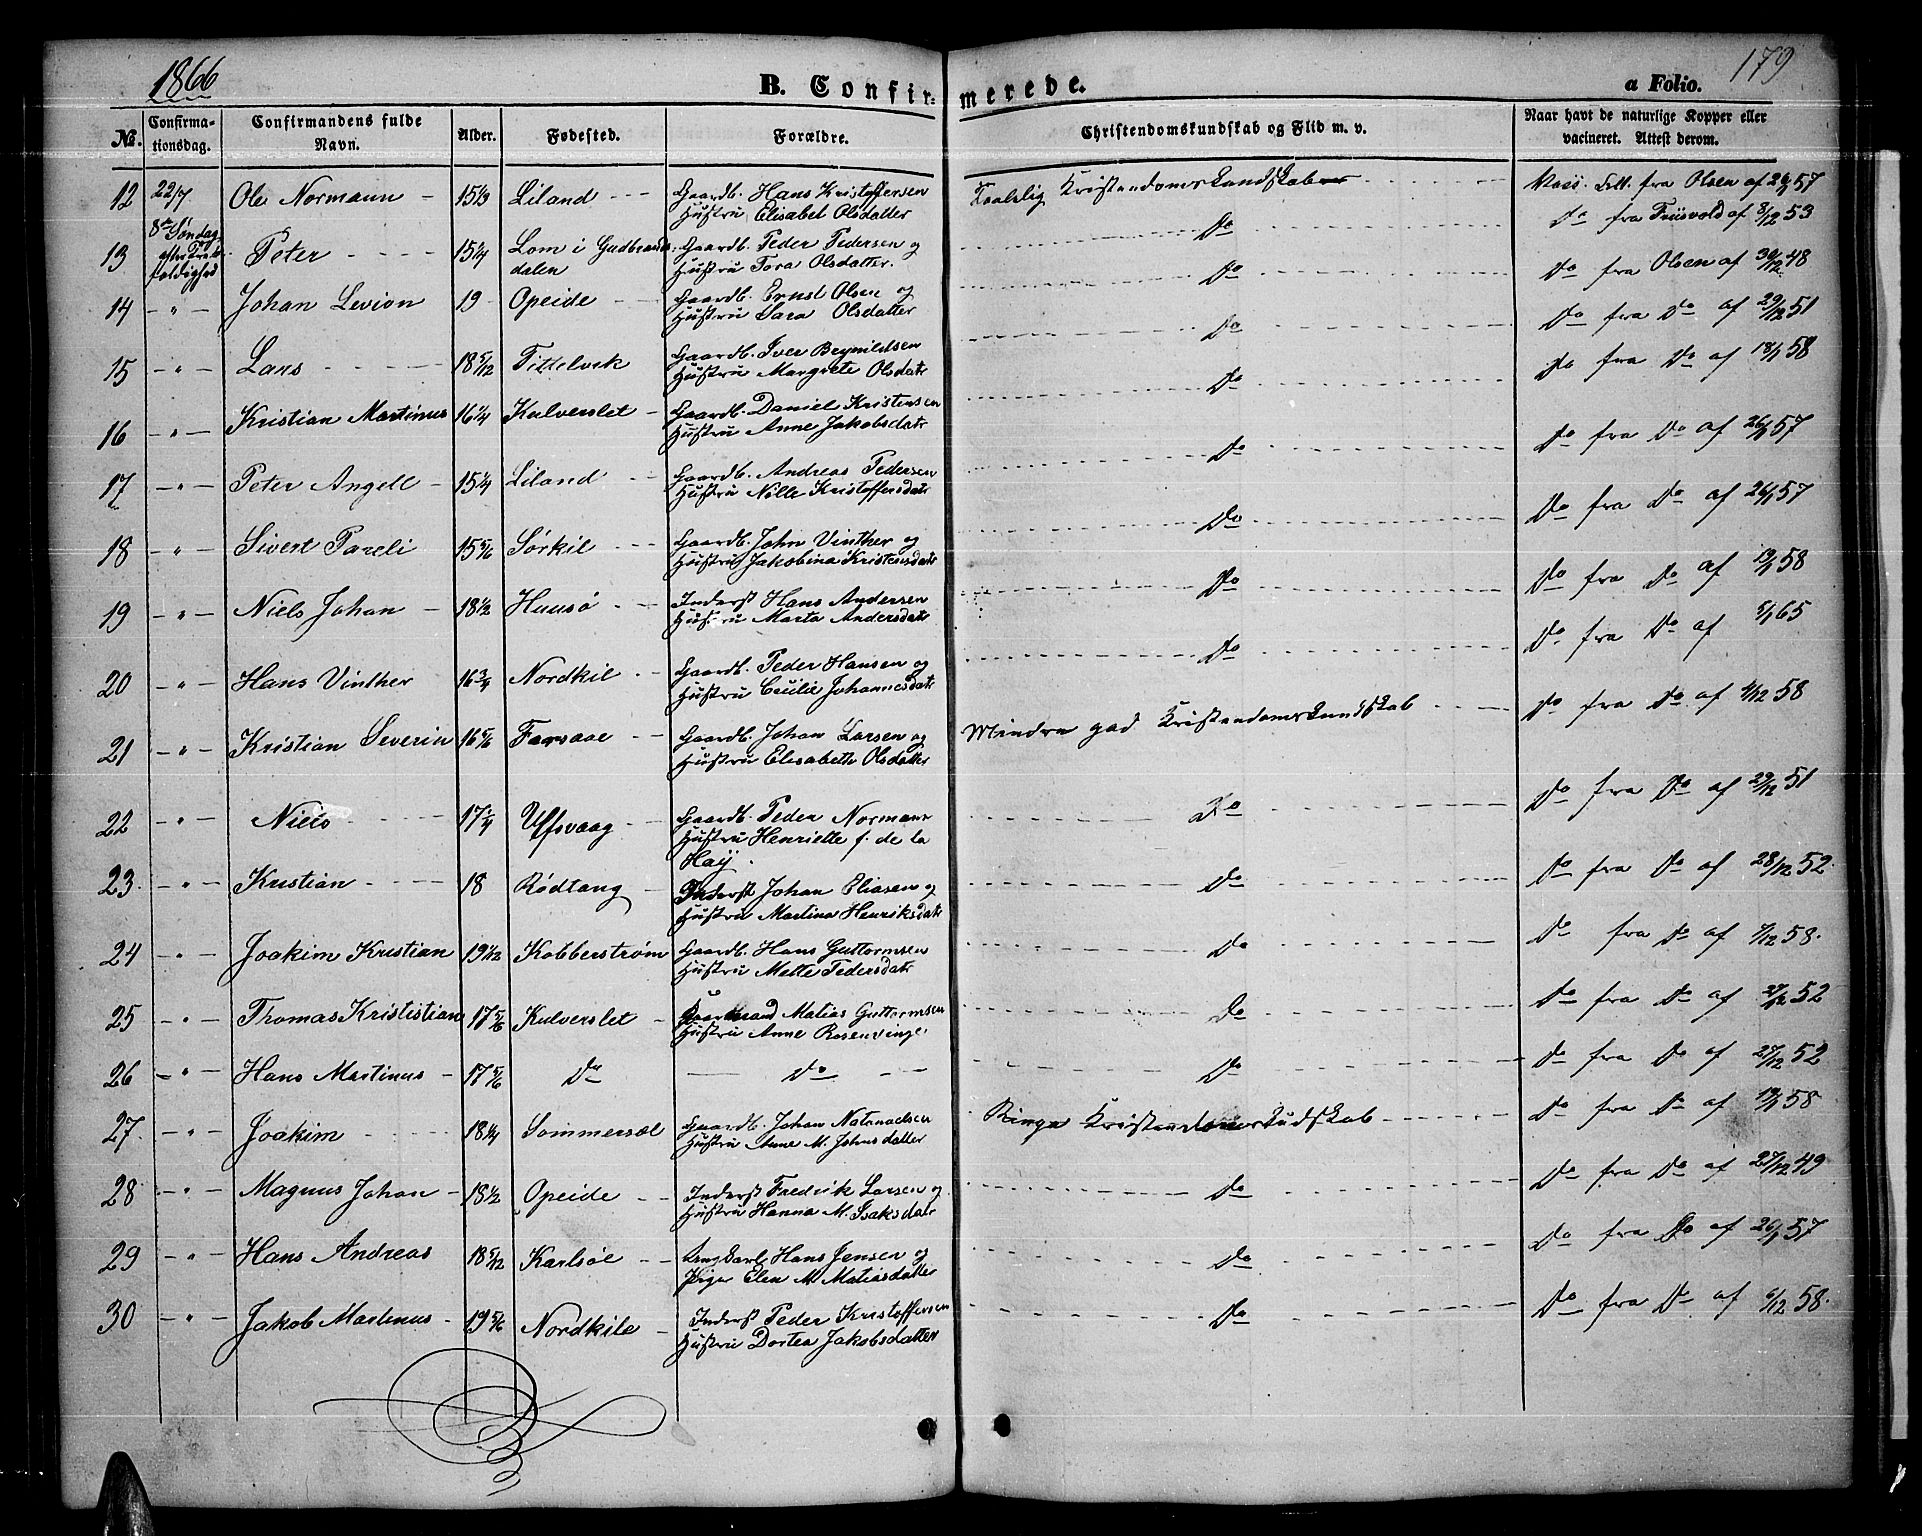 1866
179
B. Confirmerede.
a Folio.
No. Confirmationsdag. Confirmandens fulde Navn. Alder. Fødested. Forældre. Christendomskundskab og Flid m. v. Naar havt de naturlige Kopper eller vacineret. Attest derom.
12 22/7 Ole Normann - 15 1/3 Liland - - Gaardb. Hans Kristoffersen Hustru Elisabet Olsdatter Taalelig Kristendomskundskab Att. fra Olsen af 57
8de Søndag efter Trefoldighed
13 Peter - - - - 15 1/4 Lom i Gudbrandsdalen Gaardb. Peder Pedersen og Hustru Tora Olsdatter. Do Do fra af 8/12 53
14 - " - Johan Levion 19 Opeide - - Gaardb. Ernst Olsen og Hustru Sara Olsdatter Do Do fra Olsen af 30/12 48
15 - " - Lars - - - - 18 5/12 Tittelvik Gaardb. Iver Brynildsen Hustru Margrete Olsdatr Do Do fra Do af 29/12 51
16 - " - Kristian Martinus 16 1/4 Kulverslet - Gaardb. Daniel Kristensen Hustru Anne Jakobsdatr Do Do fra Do af 18/1 58
17 - " - Peter Angell - 15 1/4 Liland - - Gaardb. Andreas Pedersen Hustru Nille Kristoffersdatr Do Do fra Do af 57
18 - " - Sivert Pareli 15 5/6 Sørkil - - Gaardb. John Vinther og Hustru Jakobina Kristensdatr Do Do fra Do af 57
19 - " - Niels Johan - 18 1/2 Huusø - - Inderst Hans Andersen Hustru Marta Andersdatr Do Do fra Do af 19/1 58
20 - " - Hans Vinther 16 3/4 Nordkil - - Gaardb. Peder Hansen og Hustru Cecilie Johannesdatr Do Do fra Do af 65
21 - " - Kristian Severin 16 5/6 Forsaae - - Gaardb. Johan Larsen og Hustru Elisabeth Olsdatter Mindre god Kristendomskundskab - - Do fra Do af 58
22 - " - Niels - - - - 17 1/4 Uffsvaag - - Gaardb. Peder Normann Hustru Henriette f. de la Haÿ. Do Do fra Do af 29/12 51
23. - " - Kristian - - - - 18 Rødtang - Inderst Johan Eliasen og Hustru Martina Henriksdatr Do Do fra Do af 28/12 52.
24 - " - Joakim Kristian 19 1/12 Kobberstrøm Gaardb. Hans Guttormsen Hustru Mette Pedersdatr Do Do fra Do af 7/12 58.
25 - " - Thomas Krististian 17 5/6 Kulverslet - Gaardmand Matias Guttormsen Hustru Anne Rosenvinge Do Do fra Do af 27/12 52
26 - " - Hans Martinus - 17 5/6 Do - Do - - Do Do fra Do af 27/12 52
27. - " - Joakim - - - - 18 1/4 Sommersæl Gaardb. Johan Natanaelsen Hustru Anne M. Johnsdatter Ringe Kristendomskudskab Do fra Do af 19/1 58
28 - " - Magnus Johan - 18 1/2 Opeide - - Inderst Fredrik Larsen og Hustru Hanna M. Isaksdatr Do Do fra Do af 27/12 49
29 - " - Hans Andreas 18 5/12 Karlsøe - - Ungkarl Hans Jensen og Pige Elen M Matiasdatter Do Do fra Do af 57
30 - " - Jakob Martinus - 19 5/6 Nordkile - Inderst Peder Kristoffersen Hustru Dortea Jakobsdatter Do Do fra Do af 6/12 58.